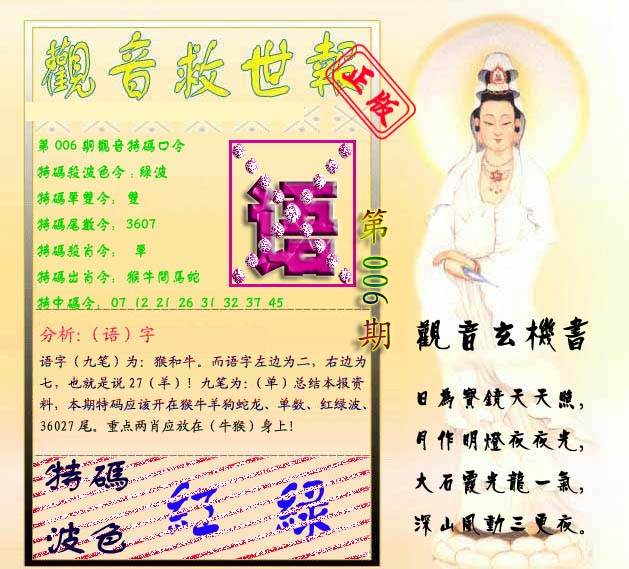 觀音救世報
正版
第006期觀音特碼口令
特碼殺波色令：綠波
特碼單雙令： 雙
特碼尾數令：3607
特碼殺肖令： 單
特碼出肖令：猴牛間馬蛇
特中碼令：07 12 21 26 31 32 37 45
语
第006期
分析:（语）字
语字（九笔）为：猴和牛。而语字左边为二，右边为
七，也就是说27（羊）！九笔为：（单）总结本报资
料，本期特码应该开在猴牛羊狗蛇龙、单数、红绿波、
36027尾。重点两肖应放在（牛猴）身上！
特碼
波色
红 綠
觀音玄機書
日為寳鏡天天照，
月作明燈夜夜光，
大石霞光龍一氣，
深山風動三更夜。